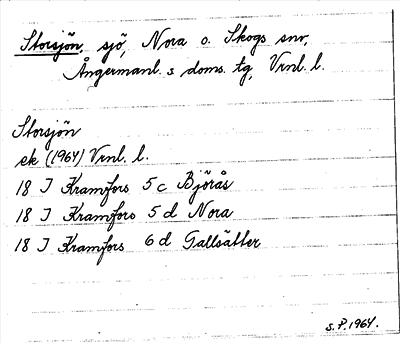 Storsjön, sjö, Nora o. Skogs snr,
Ångermanl. s doms. tg, Vrnl. l.
Storsjön
ek (1964) Vrnl. l.
18 J Kramfors 5 c Björås
18 J Kramfors 5 d Nora
18 J Kramfors 6 d Gallsätter
S.P. 1964.